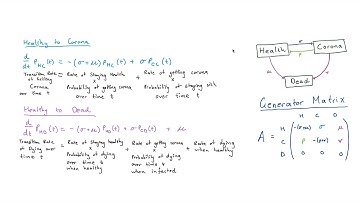 Healthy to Corona
d/dt P_HC(t) = -(σ+μ) P_HC(t) + σ P_CC(t)
Transition Rate of Getting Corona over time t = Rate of Staying Health x Probability of getting corona over time t + Rate of getting corona x Probability of staying sick over time t
Healthy to Dead
d/dt P_HD(t) = -(σ+μ) P_HD(t) + σ P_CD(t) + μ
Transition Rate of Dying over time t = Rate of staying healthy x Probability of dying over time t when healthy + Rate of getting corona x Probability of dying over time t when infected + Rate of dying when healthy
Health
σ
Corona
ρ
μ
Dead
Generator Matrix
H C D
A =
H -(σ+μ) σ μ
C ρ
D 0 0 0